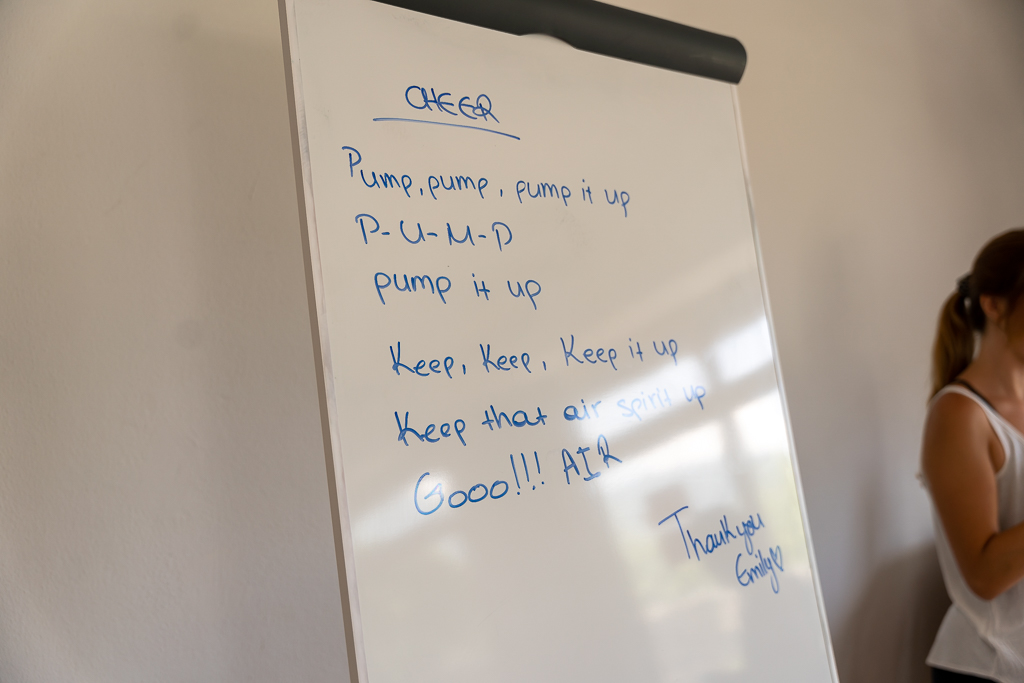 CHEER
Pump, pump, pump it up
P-U-M-P
pump it up
Keep, Keep, Keep it up
Keep that air spirit up
Gooo!!! AIR
Thank you
Emily♡